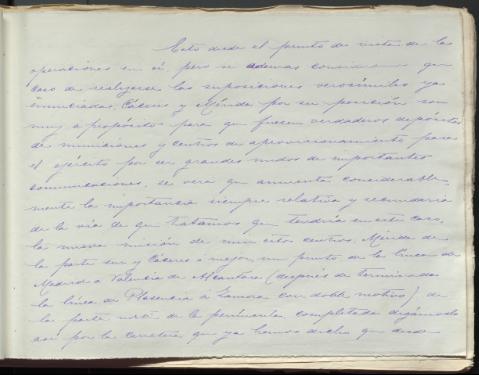 Esto desde el punto de vista de las
operaciones en sí, pero si ademas consideramos que
caso de realizarse las suposiciones verosímiles ya
enunciadas, Cáceres y Mérida por su posición son
muy a propósito para que fuesen verdaderos depósitos
de municiones y centros de aprovisionamiento para
el ejército por ser grandes nudos de importantes
comunicaciones, se verá que aumenta considerable-
mente la importancia siempre relativa y secundaria
de la vía de que tratamos que tendría en este caso,
la nueva misión de unir estos centros, Mérida de
la parte sur y Cáceres ó mejor un punto de la linea de
Madrid a Valencia de Alcántara (después de terminada
la línea de Plasencia a Zamora con doble motivo) de
la parte norte de la península completada digámoslo
así por la carretera que ya hemos dicho que desde